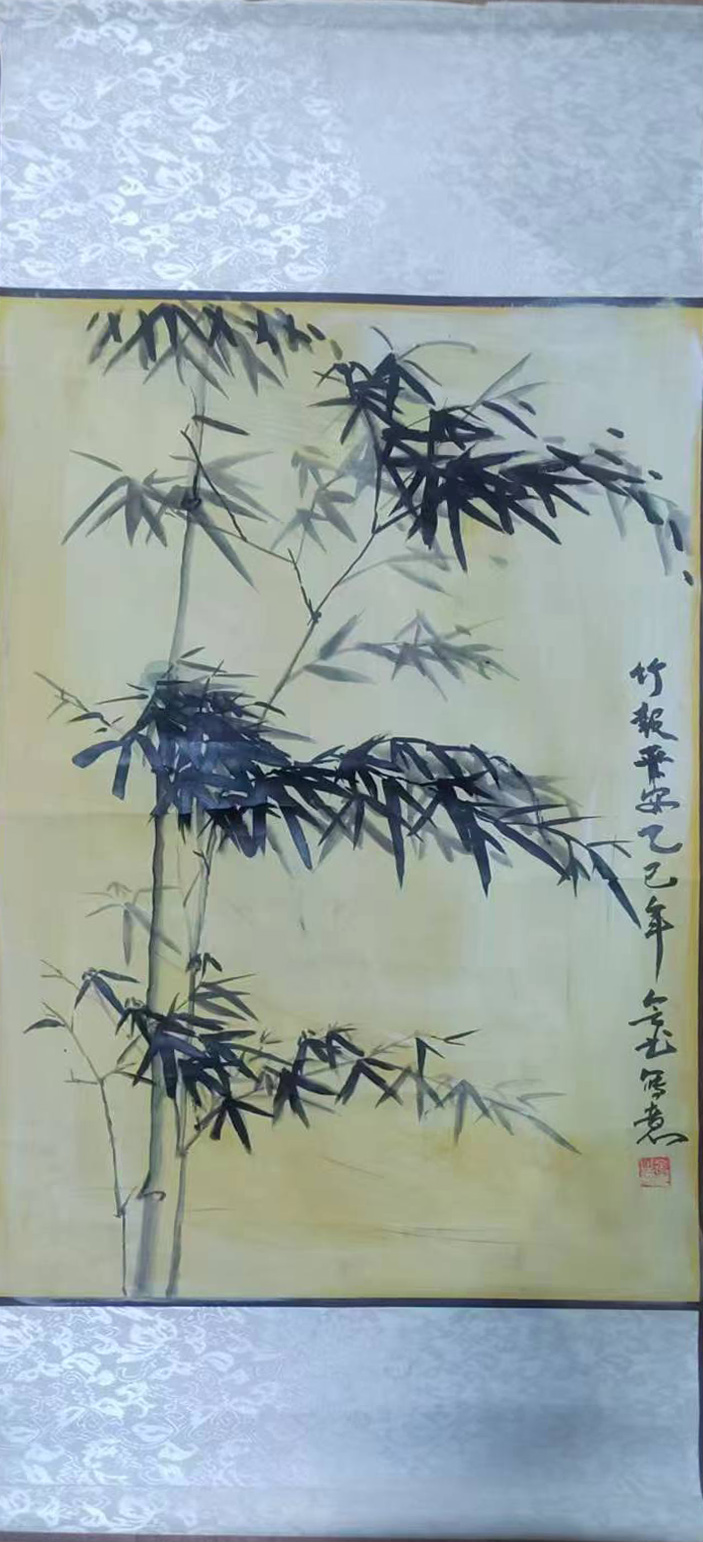 竹報平安乙巳年
写意